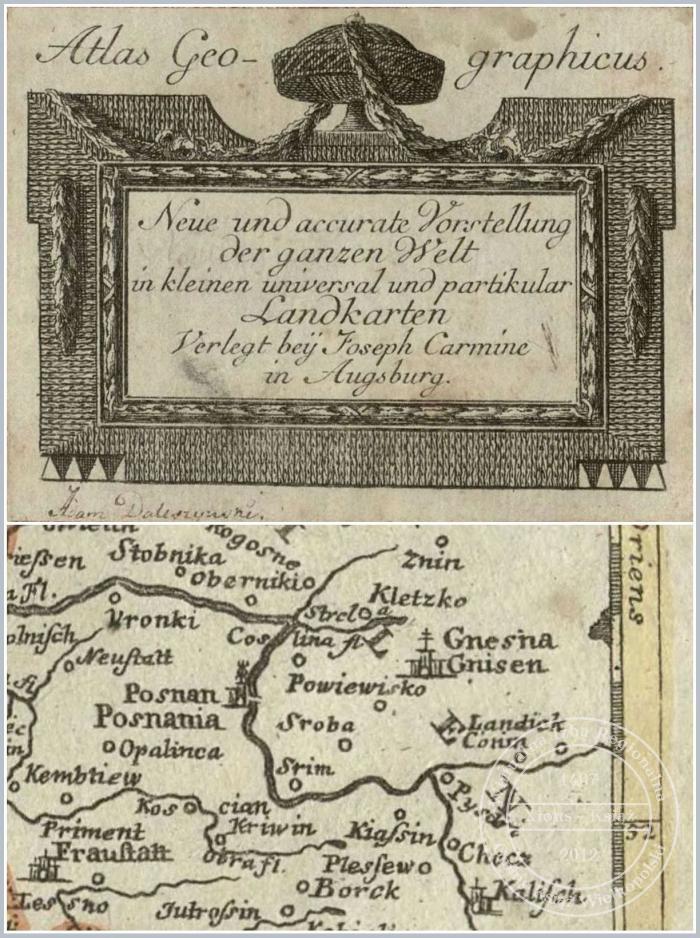 Atlas Geo- graphicus.
Neue und accurate Vorstellung
der ganzen Welt
in kleinen universal und partikular
Landkarten
Verlegt beÿ Joseph Carmine
in Augsburg.
Adam
rogosne
Stobnika
Znin
Obernikio
Fl.
Kletzko
Vronki
Strelo
Cos lina fl.
Gnesna
Neustatt
Gnisen
Powiewisko
Posnan
Posnania
Landick
Sroba
Conin
Opalinca
Srim
Kembtiew
Pys
Kos cian
Kriwin
Kiassin
Priment
Fraustatt
Obra fl.
Plessewo
Checz
Borck
Kalisch
Lessno
Jutrossin
Oriens
52
Xions - Książ
2012